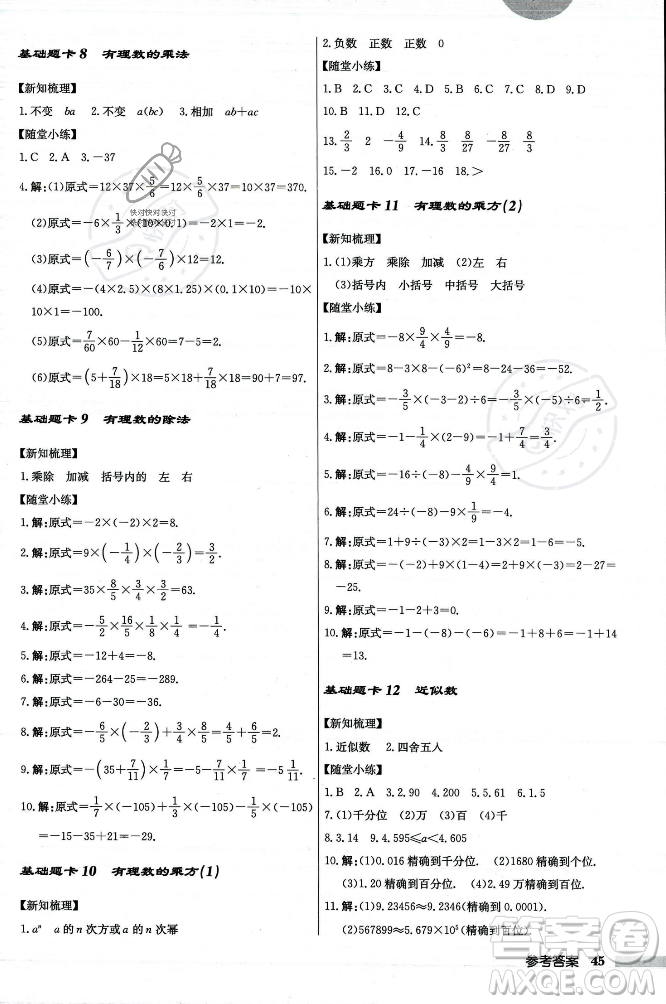 基础题卡 8 有理数的乘法
【新知梳理】
1.不变 ba 2.不变 a(bc) 3.相加 ab+ac
【随堂小练】
1.C 2.A 3.-37
4.解:(1)原式=12×37×5/6=12×5/6×37=10×37=370.
(2)原式=-6×1/3×(10×0.1)=-2×1=-2.
(3)原式=(-6/7)×(-7/6)×15=1×15=15.
(4)原式=-(4×2.5)×(8×1.25)=-10×
10×1=-100.
(5)原式=7/60×60-1/12×60=7-5=2.
(6)原式=(5+7/18)×18=5×18+7/18×18=97.
基础题卡 9 有理数的除法
【新知梳理】
1.乘除 加减 括号内的 左 右
【随堂小练】
1.解:原式=-2×(-2)×2=8.
2.解:原式=9×(-1/4)×(-2/3)=3/2.
3.解:原式=35×8/5×3/4×3/2=63.
4.解:原式=-5/2×16/5×1/8×1/4=-1/4.
5.解:原式=-12+4=-8.
6.解:原式=-264-25=-289.
7.解:原式=-6-30=-36.
8.解:原式=-6/5×(-5/2)×2/3=6/5×5/2×2/3=2.
9.解:原式=(35+7/11)×1/7=35×1/7+7/11×1/7=5 1/11.
10.解:原式=1/7×(-105)+1/3×(-105)-1/5×(-105)
=-15-35+21=-29.
基础题卡 10 有理数的乘方(1)
【新知梳理】
1.aⁿ a的n次方或a的n次幂
2.负数 正数 正数 0
【随堂小练】
1.B 2.C 3.D 4.B 5.A 6.C 7.C 8.A 9.D
10.D 11.A 12.C
13.2/3 2 -4/9 14.8/3 8/27 -8/27
15.-2 16.0 17.-16 18.>
基础题卡 11 有理数的乘方(2)
【新知梳理】
1.(1)乘方 乘除 加减 (2)左 右
(3)括号内 小括号 中括号 大括号
【随堂小练】
1.解:原式=-8×9/4×4/9=-8.
2.解:原式=8-3×8-(-6)²=8-24-36=-52.
3.解:原式=-3/5×(-5-5)÷6=-3/5×(-5)÷6=1/2.
4.解:原式=-1-1/4×(2-9)=-1+7/4=3/4.
5.解:原式=-8÷4/9×4/9=-8×9/4×4/9=-8.
6.解:原式=24÷(-8)-9×1/9=-3-1=-4.
7.解:原式=1+9÷(-3)×2=1-3×2=-5.
8.解:原式=-1+(-5)×9-9÷(-3)=-1-45+3=-43.
9.解:原式=-1-(-8)-6=-1+8-6=1.
10.解:原式=-1-1÷4×(-32)+6=-1+8+6
=13.
基础题卡 12 近似数
【新知梳理】
1.近似数 2.四舍五入
【随堂小练】
1.B 2.A 3.2.90 4.200 5.5.61 6.1.5
7.(1)千分位 (2)万 (3)百 (4)千
8.3.14 9.4.595≤a<4.605
10.解:(1)0.016精确到千分位. (2)1680精确到个位.
(3)1.20精确到百分位. (4)2.49万精确到百位.
11.解:(1)9.23456≈9.2346(精确到0.0001).
(2)567899≈5.679×10⁵(精确到百位).
参考答案 45
答案圈
MXQE.COM